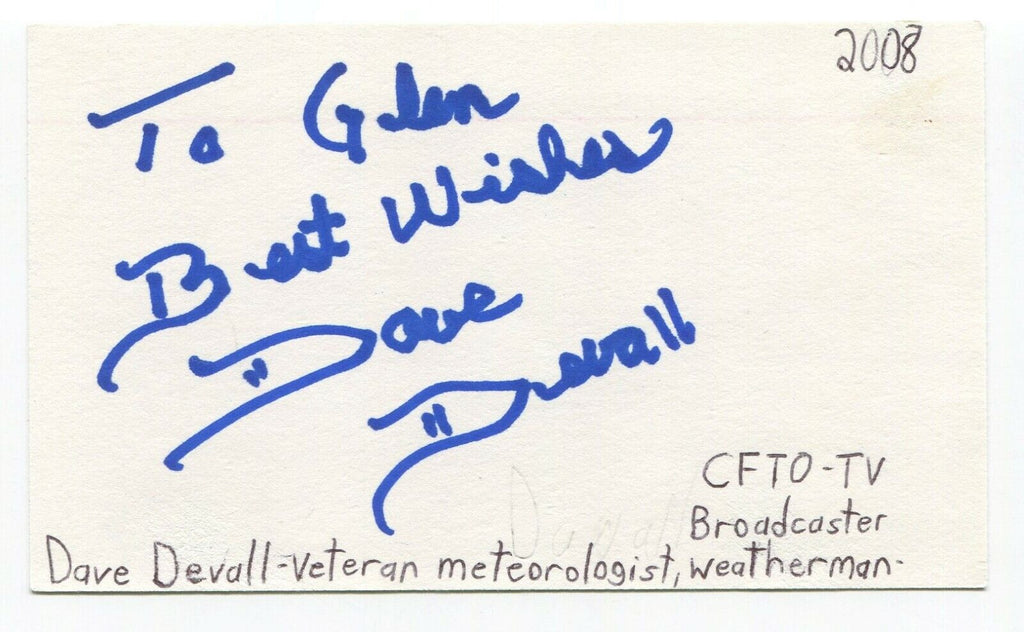 2008
To Glen
Best Wishes
Dave
Devall
CFTO-TV
Broadcaster
Dave Devall-Veteran meteorologist, weatherman-